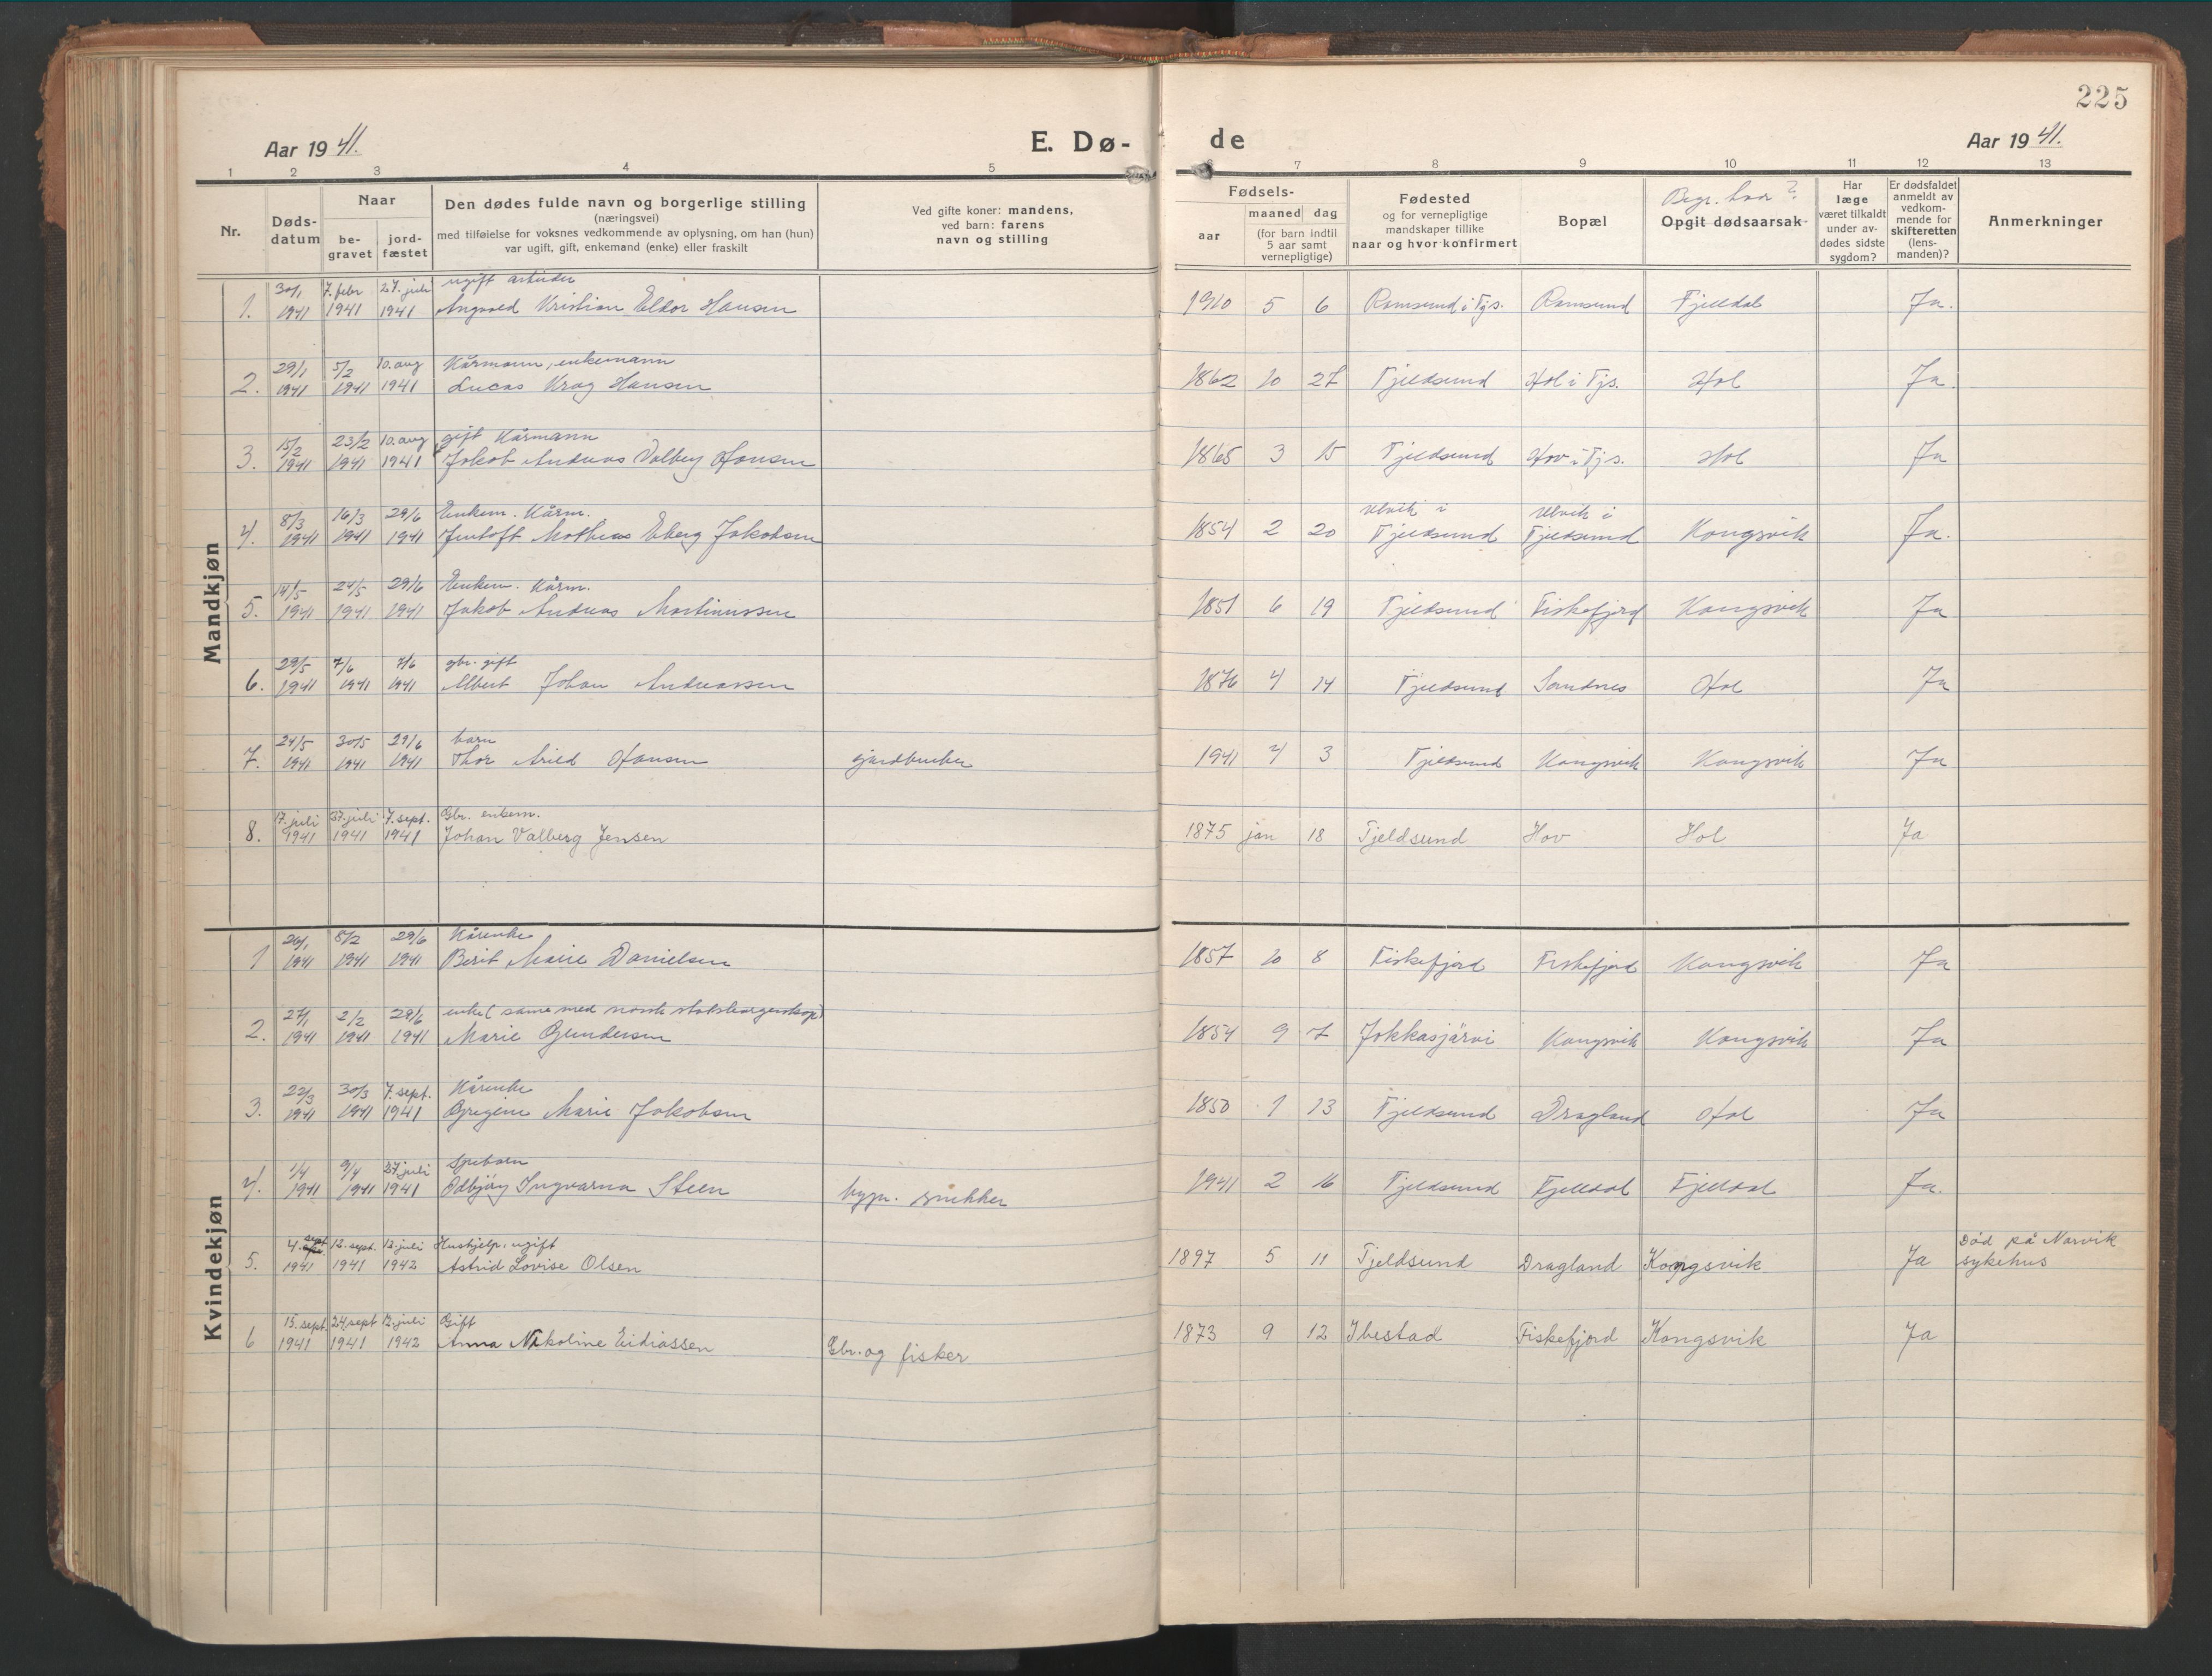 225
Aar 19 41.
E. Dø-
de
Aar 19 41.
1 2 3 4 5 6 7 8 9 10 11 12 13
Nr.
Døds-
datum
Naar
be-
gravet
jord-
fæstet
Den dødes fulde navn og borgerlige stilling
(næringsvei)
med tilføielse for voksnes vedkommende av oplysning, om han (hun)
var ugift, gift, enkemand (enke) eller fraskilt
Ved gifte koner: mandens,
ved barn: farens
navn og stilling
Fødsels-
aar
maaned dag
(for barn indtil
5 aar samt
vernepligtige)
Fødested
og for vernepligtige
mandskaper tillike
naar og hvor konfirmert
Bopæl
Begr. hvor?
Opgit dødsaarsak
Har
læge
været tilkaldt
under av-
dødes sidste
sygdom?
Er dødsfaldet
anmeldt av
vedkom-
mende for
skifteretten
(lens-
manden)?
Anmerkninger
Mandkjøn
30/1 7. febr 27. juli ugift arbeider
1. 1941 1941 1941 Angvald Kristian Eldor Hansen 1910 5 6 Ramsund i Tjs. Ramsund Fjelldal Ja.
29/1 5/2 10. aug Kårmann, enkemann
2. 1941 1941 1941 Lucas Krag Hansen 1862 10 27 Tjeldsund Hol i Tjs. Hol Ja.
15/2 23/2 10. aug gift Kårmann
3. 1941 1941 1941 Jakob Andreas Valberg Hansen 1865 3 15 Tjeldsund Hov i Tjs. Hol Ja
8/3 16/3 29/6 Enkem. Kårm. Ulvik i Ulvik i
4. 1941 1941 1941 Jentoft Mathias Eberg Jakobsen 1854 2 20 Tjeldsund Tjeldsund Kongsvik Ja.
14/5 24/5 29/6 Enkem. Kårm.
5. 1941 1941 1941 Jakob Andreas Martinussen 1851 6 19 Tjeldsund Fiskefjord Kongsvik Ja
29/5 7/6 7/6 gbr. gift
6. 1941 1941 1941 Albert Johan Andreassen 1876 4 14 Tjeldsund Sandnes Hol Ja
24/5 30/5 29/6 barn
7. 1941 1941 1941 Thor Arild Hansen gårdbruker 1941 4 3 Tjeldsund Kongsvik Kongsvik Ja
17. juli 27. juli 7. sept. Gbr. enkem.
8. 1941 1941 1941 Johan Valberg Jensen 1875 jan 18 Tjeldsund Hov Hol Ja
Kvindekjøn
26/1 8/2 29/6 Kårenke
1 1941 1941 1941 Berit Marie Danielsen 1857 10 8 Fiskefjord Fiskefjord Kongsvik Ja
27/1 2/2 29/6 enke (same med norsk statsborgerskap)
2. 1941 1941 1941 Marie Gundersen 1854 9 7 Jokkasjärvi Kongsvik Kongsvik Ja
22/3 30/3 7. sept. Kårenke
3. 1941 1941 1941 Gregine Marie Jakobsen 1850 1 13 Tjeldsund Dragland Hol Ja
1/4 9/4 27. juli Spebarn
4. 1941 1941 1941 Odbjørg Ingvarna Steen bygn. snikker 1941 2 16 Tjeldsund Fjelldal Fjelldal Ja.
4. sept. 12. sept. 12. juli Hushjelp, ugift Død på Narvik
5. 1941 1941 1942 Astrid Lovise Olsen 1897 5 11 Tjeldsund Dragland Kongsvik Ja sykehus
15. sept. 24. sept 12. juli Gift
6 1941 1941 1942 Anna Nikoline Eidiassen Gbr. og fisker 1873 9 12 Ibestad Fiskefjord Kongsvik Ja